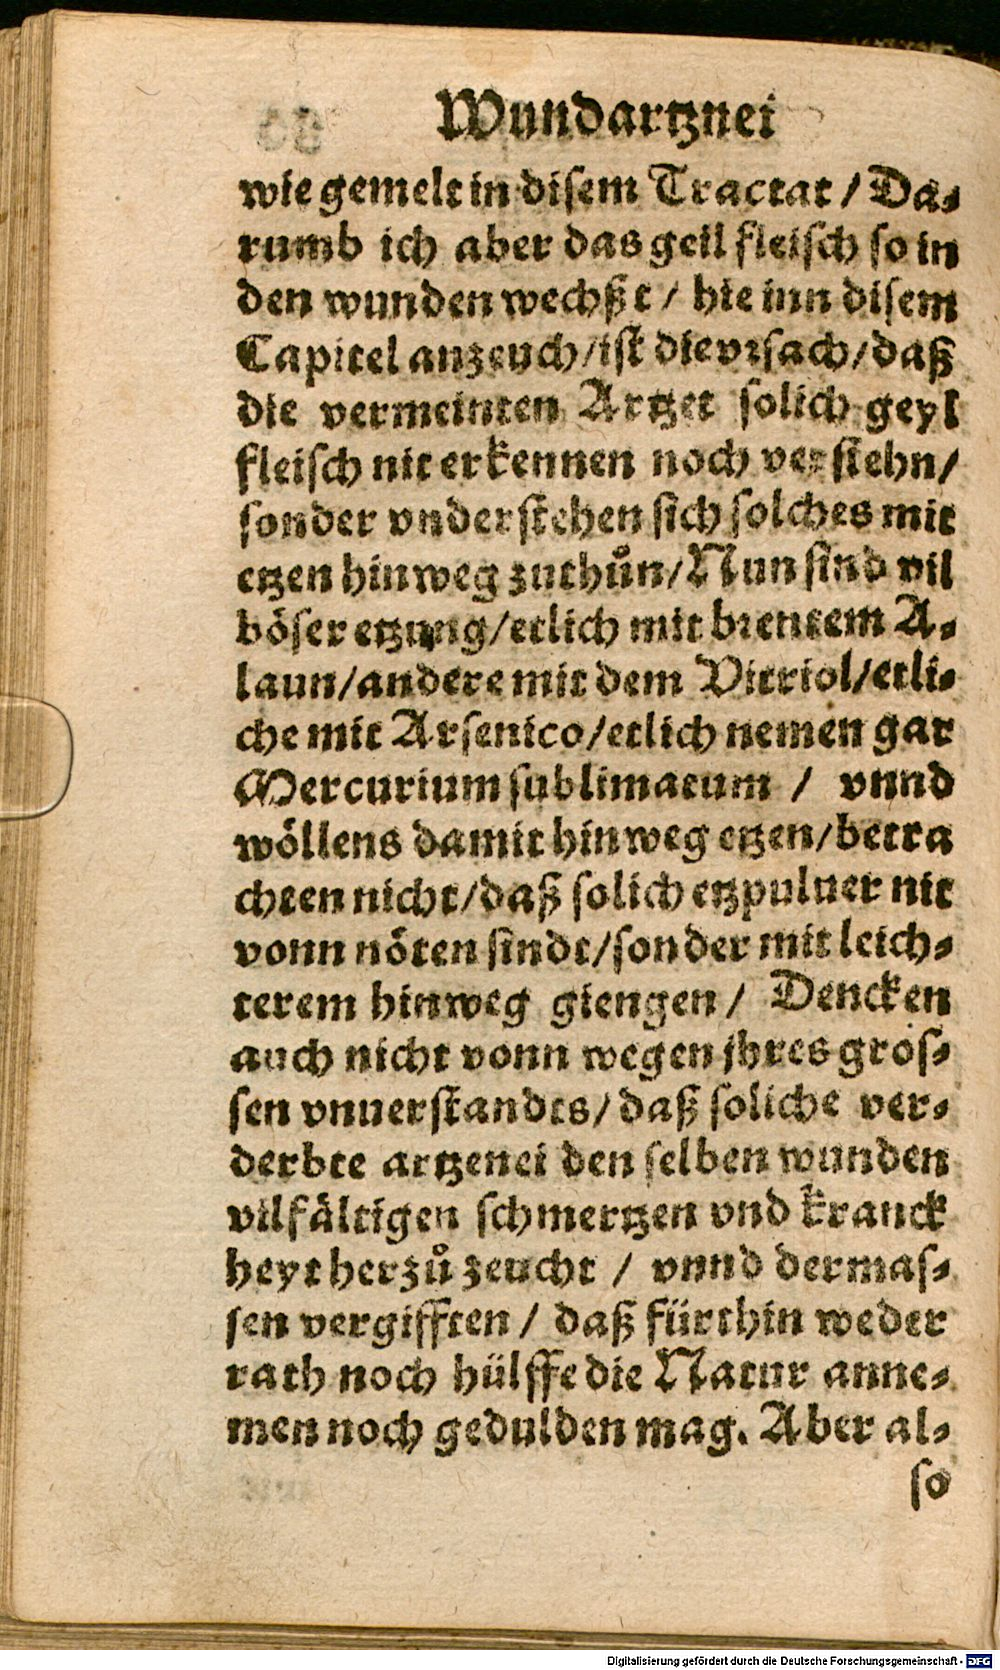 Wundartznei
wie gemelt in disem Tractat / Da-
rumb ich aber das geil fleisch so in
den wunden wechßt / hie inn disem
Capitel anzeuch/ist die vrsach/daß
die vermeinten Artzet solich geyl
fleisch nit erkennen noch verstehn/
sonder vnderstehen sich solches mit
etzen hinweg zuthůn/Nun sind vil
böser etzung/etlich mit brentem A-
laun/andere mit dem Vitriol/etli-
che mit Arsenico/etlich nemen gar
Mercurium sublimatum / vnnd
wöllens damit hinweg etzen/betra
chten nicht/daß solich etzpuluer nit
vonn nöten sindt/sonder mit leich-
terem hinweg giengen / Dencken
auch nicht vonn wegen jhres gros-
sen vnuerstandts/daß soliche ver-
derbte artzenei den selben wunden
vilfältigen schmertzen vnd kranck
heyt herzů zeucht / vnnd dermas-
sen vergifften / daß fürthin weder
rath noch hülffe die Natur anne-
men noch gedulden mag. Aber al-
so
Digitalisierung gefördert durch die Deutsche Forschungsgemeinschaft - DFG